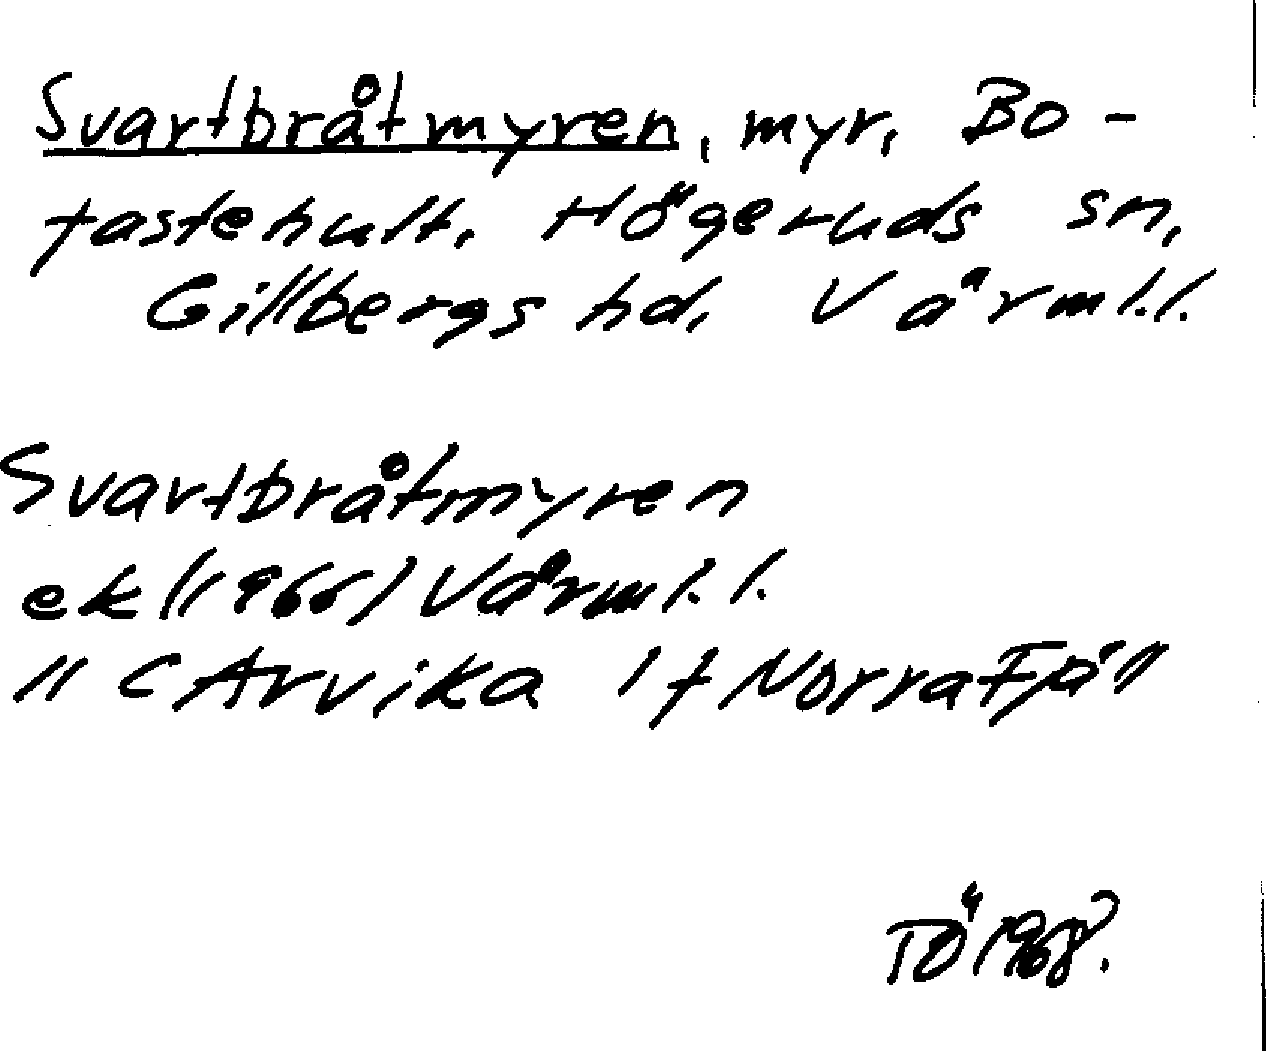 Svartbråtmyren, myr, Bo-
fastehult, Högeruds sn,
Gillbergs hd, Värml.l.
Svartbråtmyren
ek (1966) Värml.l.
" C Arvika 1 f Norra Fjäll
TÖ 1968.